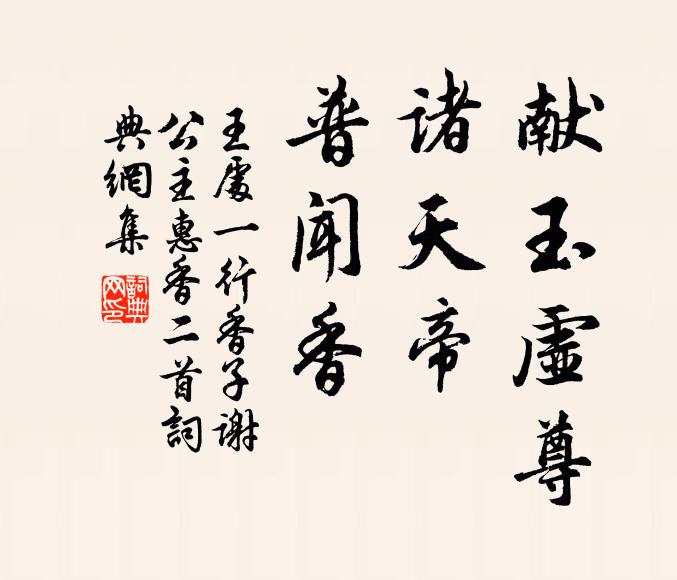 献玉虛尊
诸天帝
普闻香
王處一行香子谢
公主惠香二首詞
典網集
詞典网印